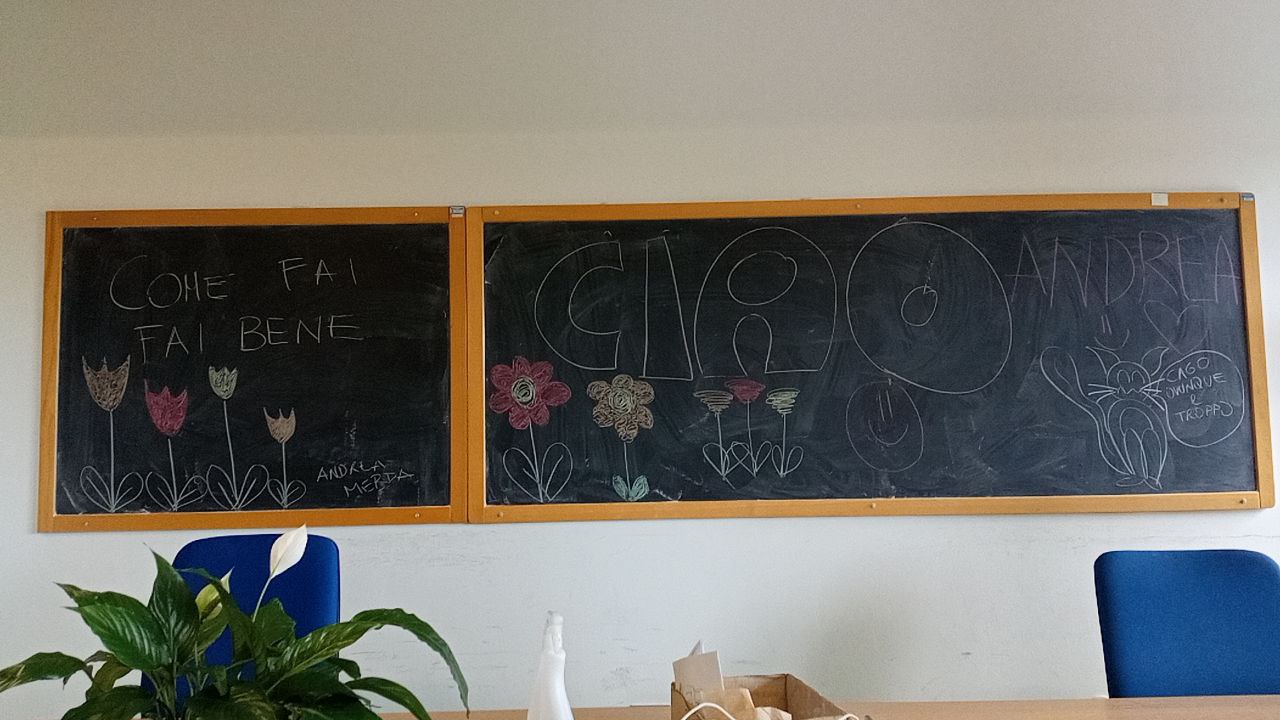 COME FAI
FAI BENE
ANDREA
MERDA
CIAO
ANDREA
CAGO
OVUNQUE
E
TROPPO